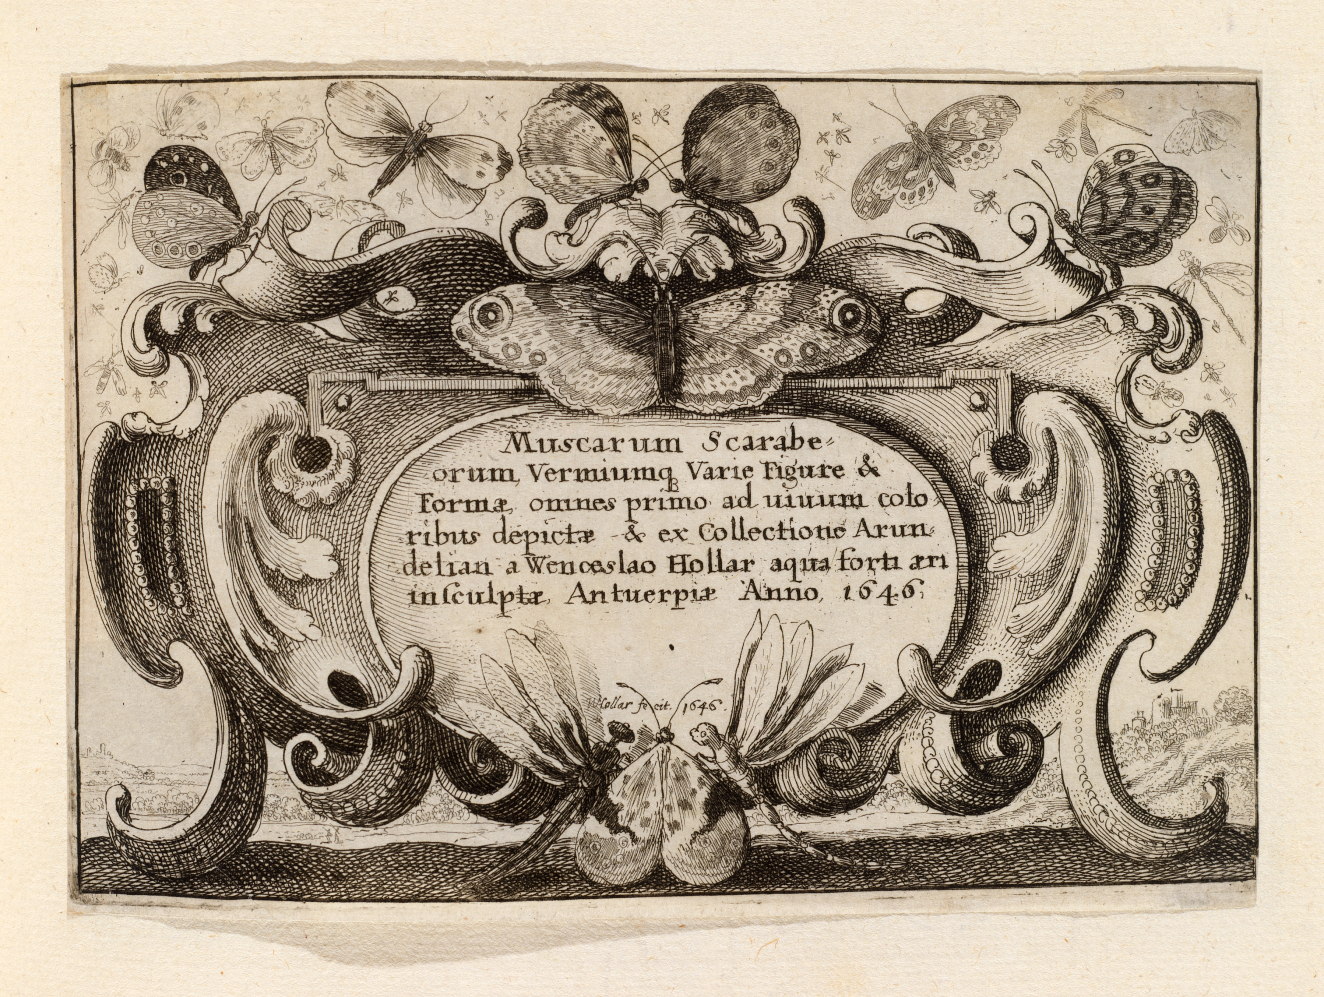 Muscarum Scarabe=
orum, Vermiumq Varie Figure &
Formæ, omnes primo ad uiuum colo
ribus depictæ & ex Collectione Arun=
delian a Wenceslao Hollar aqua forti æri
insculptæ, Antuerpiæ Anno, 1646;
WHollar fecit. 1646.